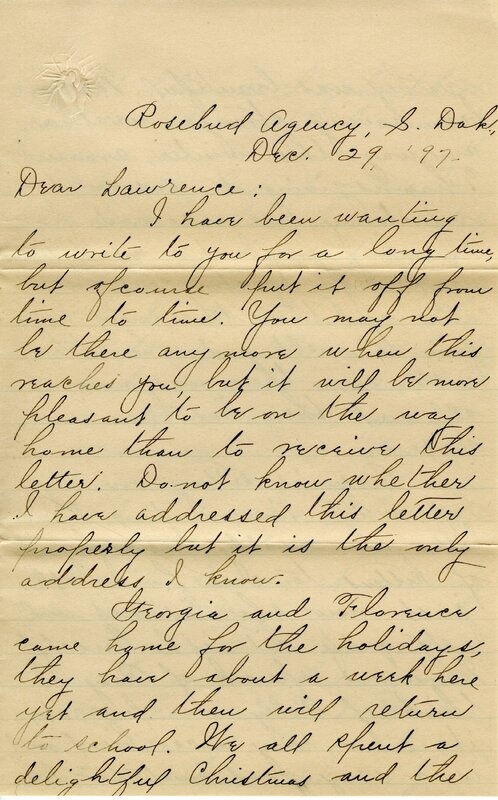 Rosebud Agency, S. Dak.
Dec. 29, '97.
Dear Lawrence:
I have been wanting
to write to you for a long time,
but ofcourse put it off from
time to time. You may not
be there any more when this
reaches you, but it will be more
pleasant to be on the way
home than to receive this
letter. Do not know whether
I have addressed this letter
properly but it is the only
address I know.
Georgia and Florence
came home for the holidays,
they have about a week here
yet and then will return
to school. We all spent a
delightful Christmas and the